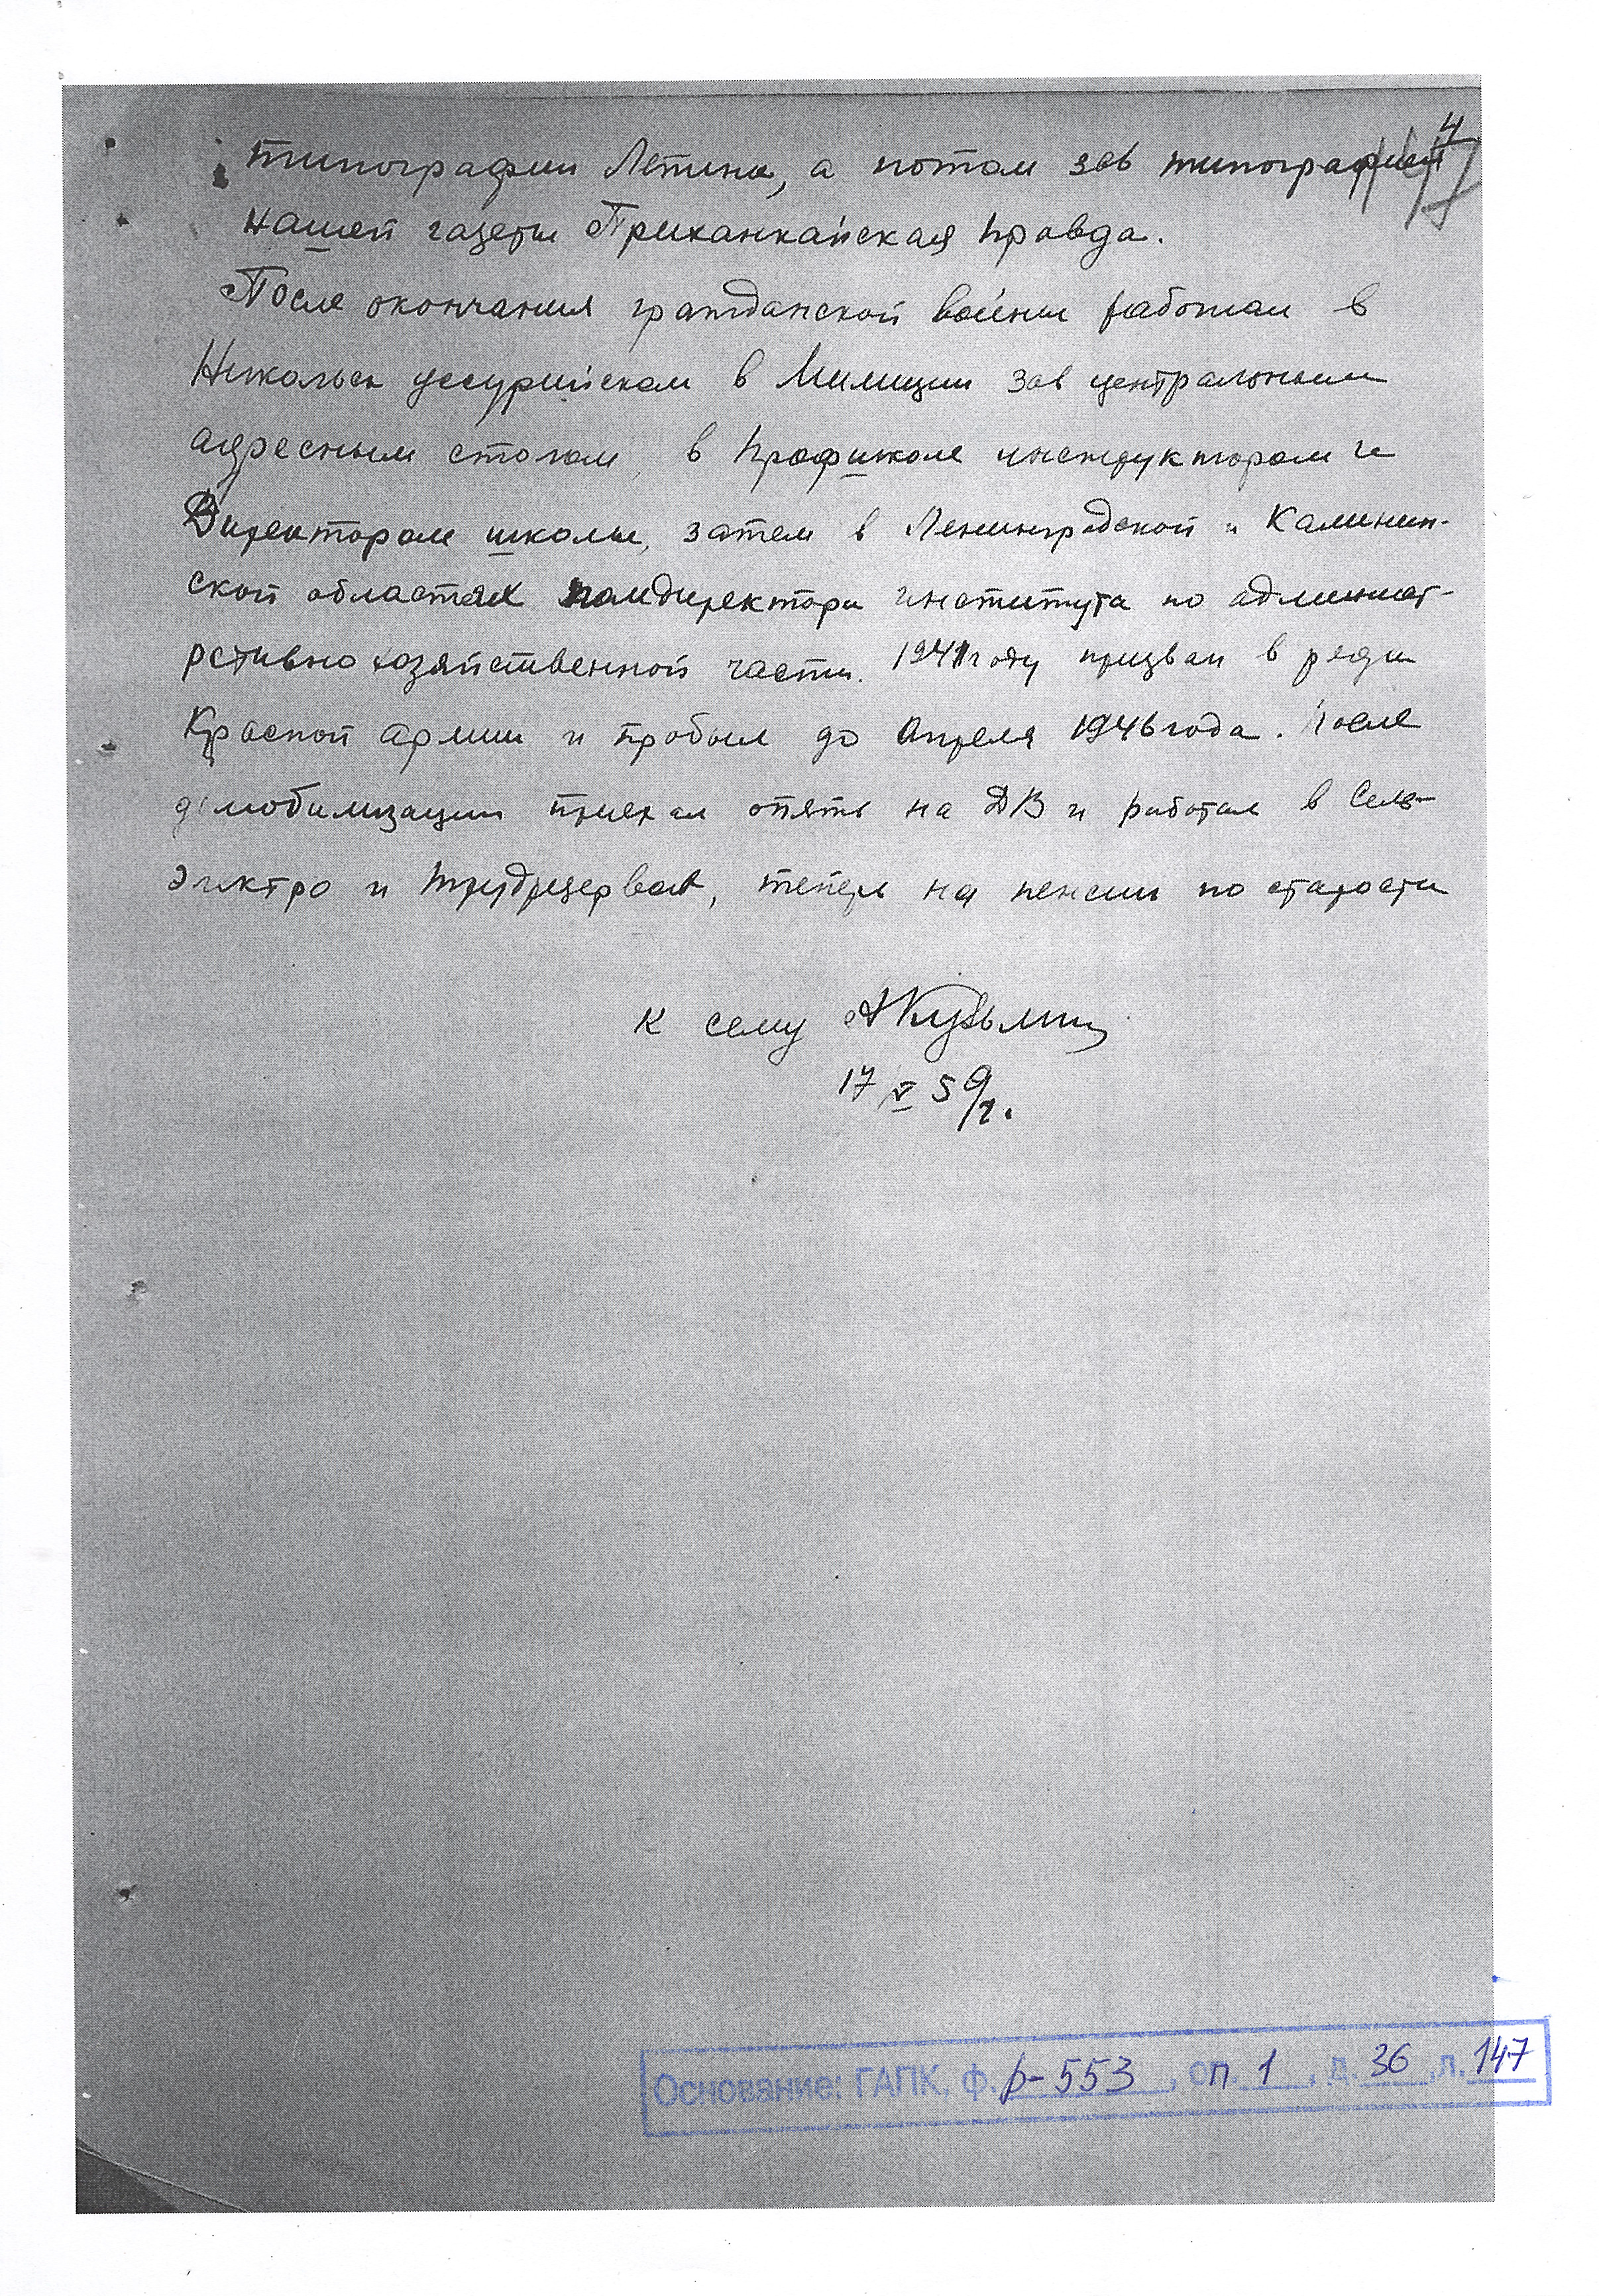 4
147
типографии Лепина, а потом зав типографией
нашей газеты Приханкайская правда.
После окончания гражданской войны работал в
Никольск уссурийском в Милиции зав центральным
адресным столом, в Профшколе инструктором и
Директором школы, затем в Ленинградской и Калинин-
ской областях помдиректора института по админист-
ративно хозяйственной части. 1941 году призван в ряды
Красной армии и пробыл до Апреля 1946 года. После
демобилизации приехал опять на ДВ и работал в Сель-
электро и трудрезервах, теперь на пенсии по старости
К сему АКузьмин
17/V 59 г.
Основание: ГАПК, ф. р-553, оп. 1, д. 36, л. 147